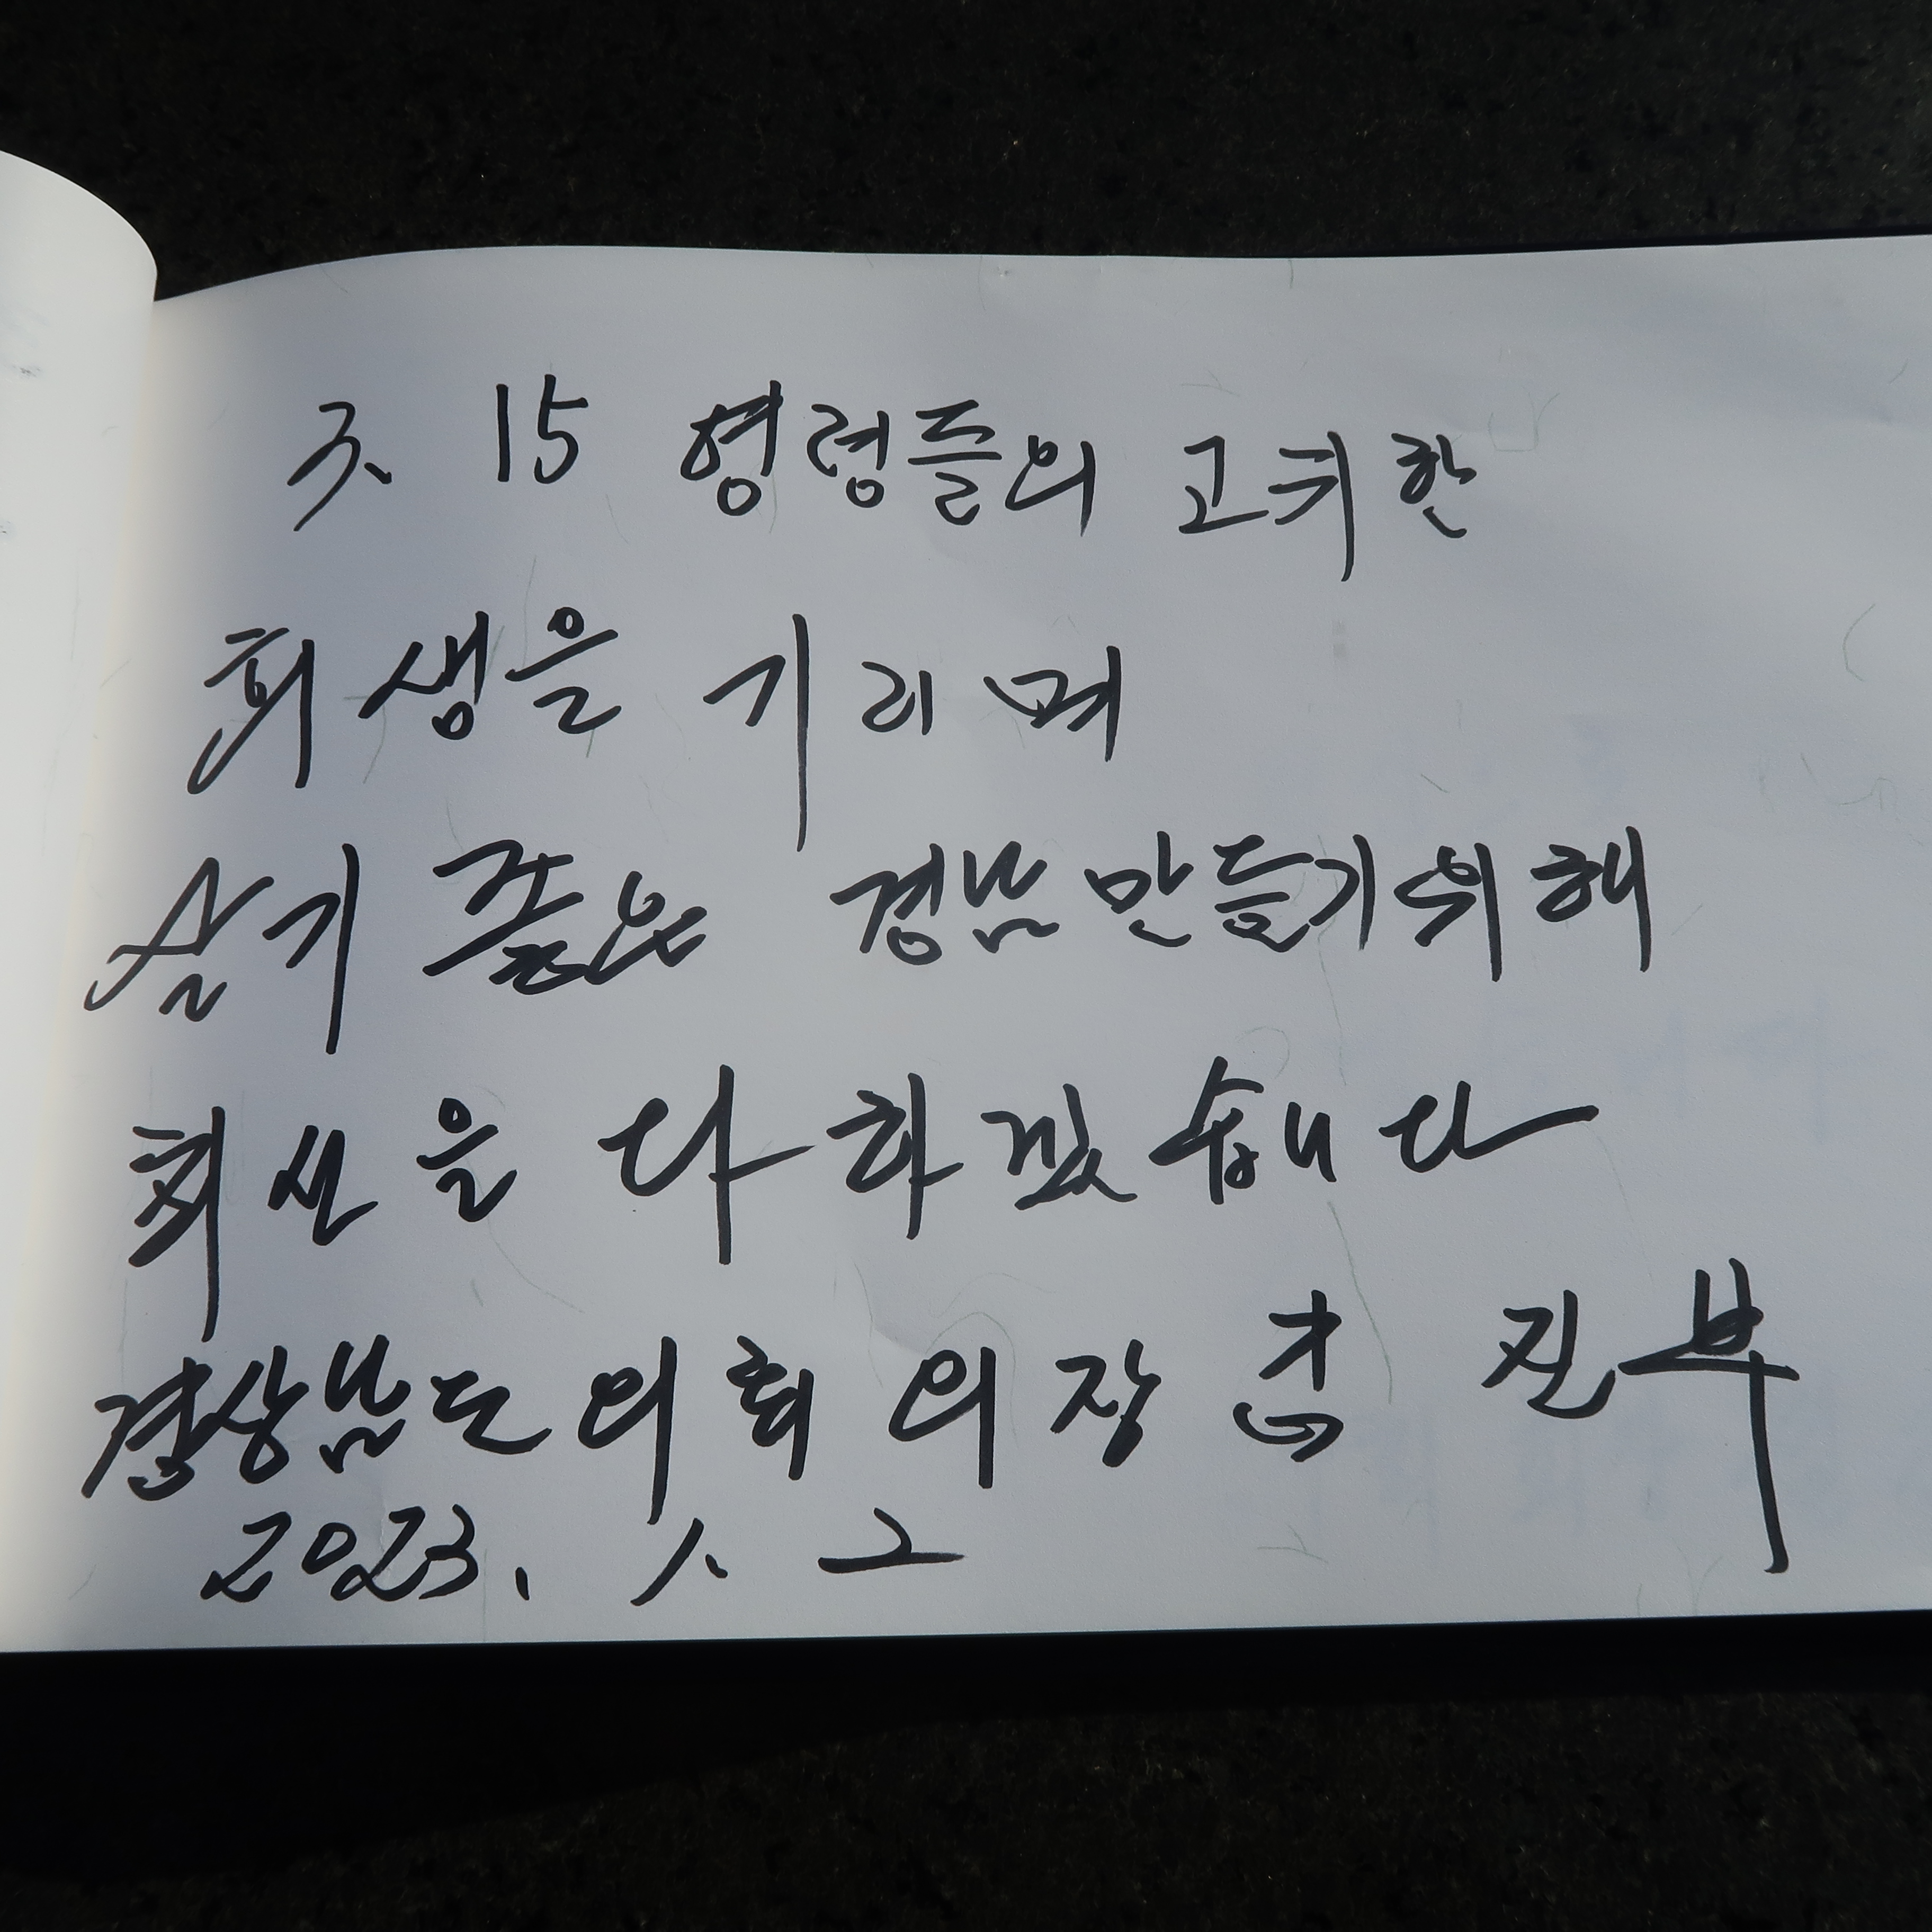 3. 15 영령들의 고귀한
희생을 기리며
살기 좋은 경남 만들기 위해
최선을 다하겠습니다
경상남도의회 의장 김 진부
2023. 1. 2